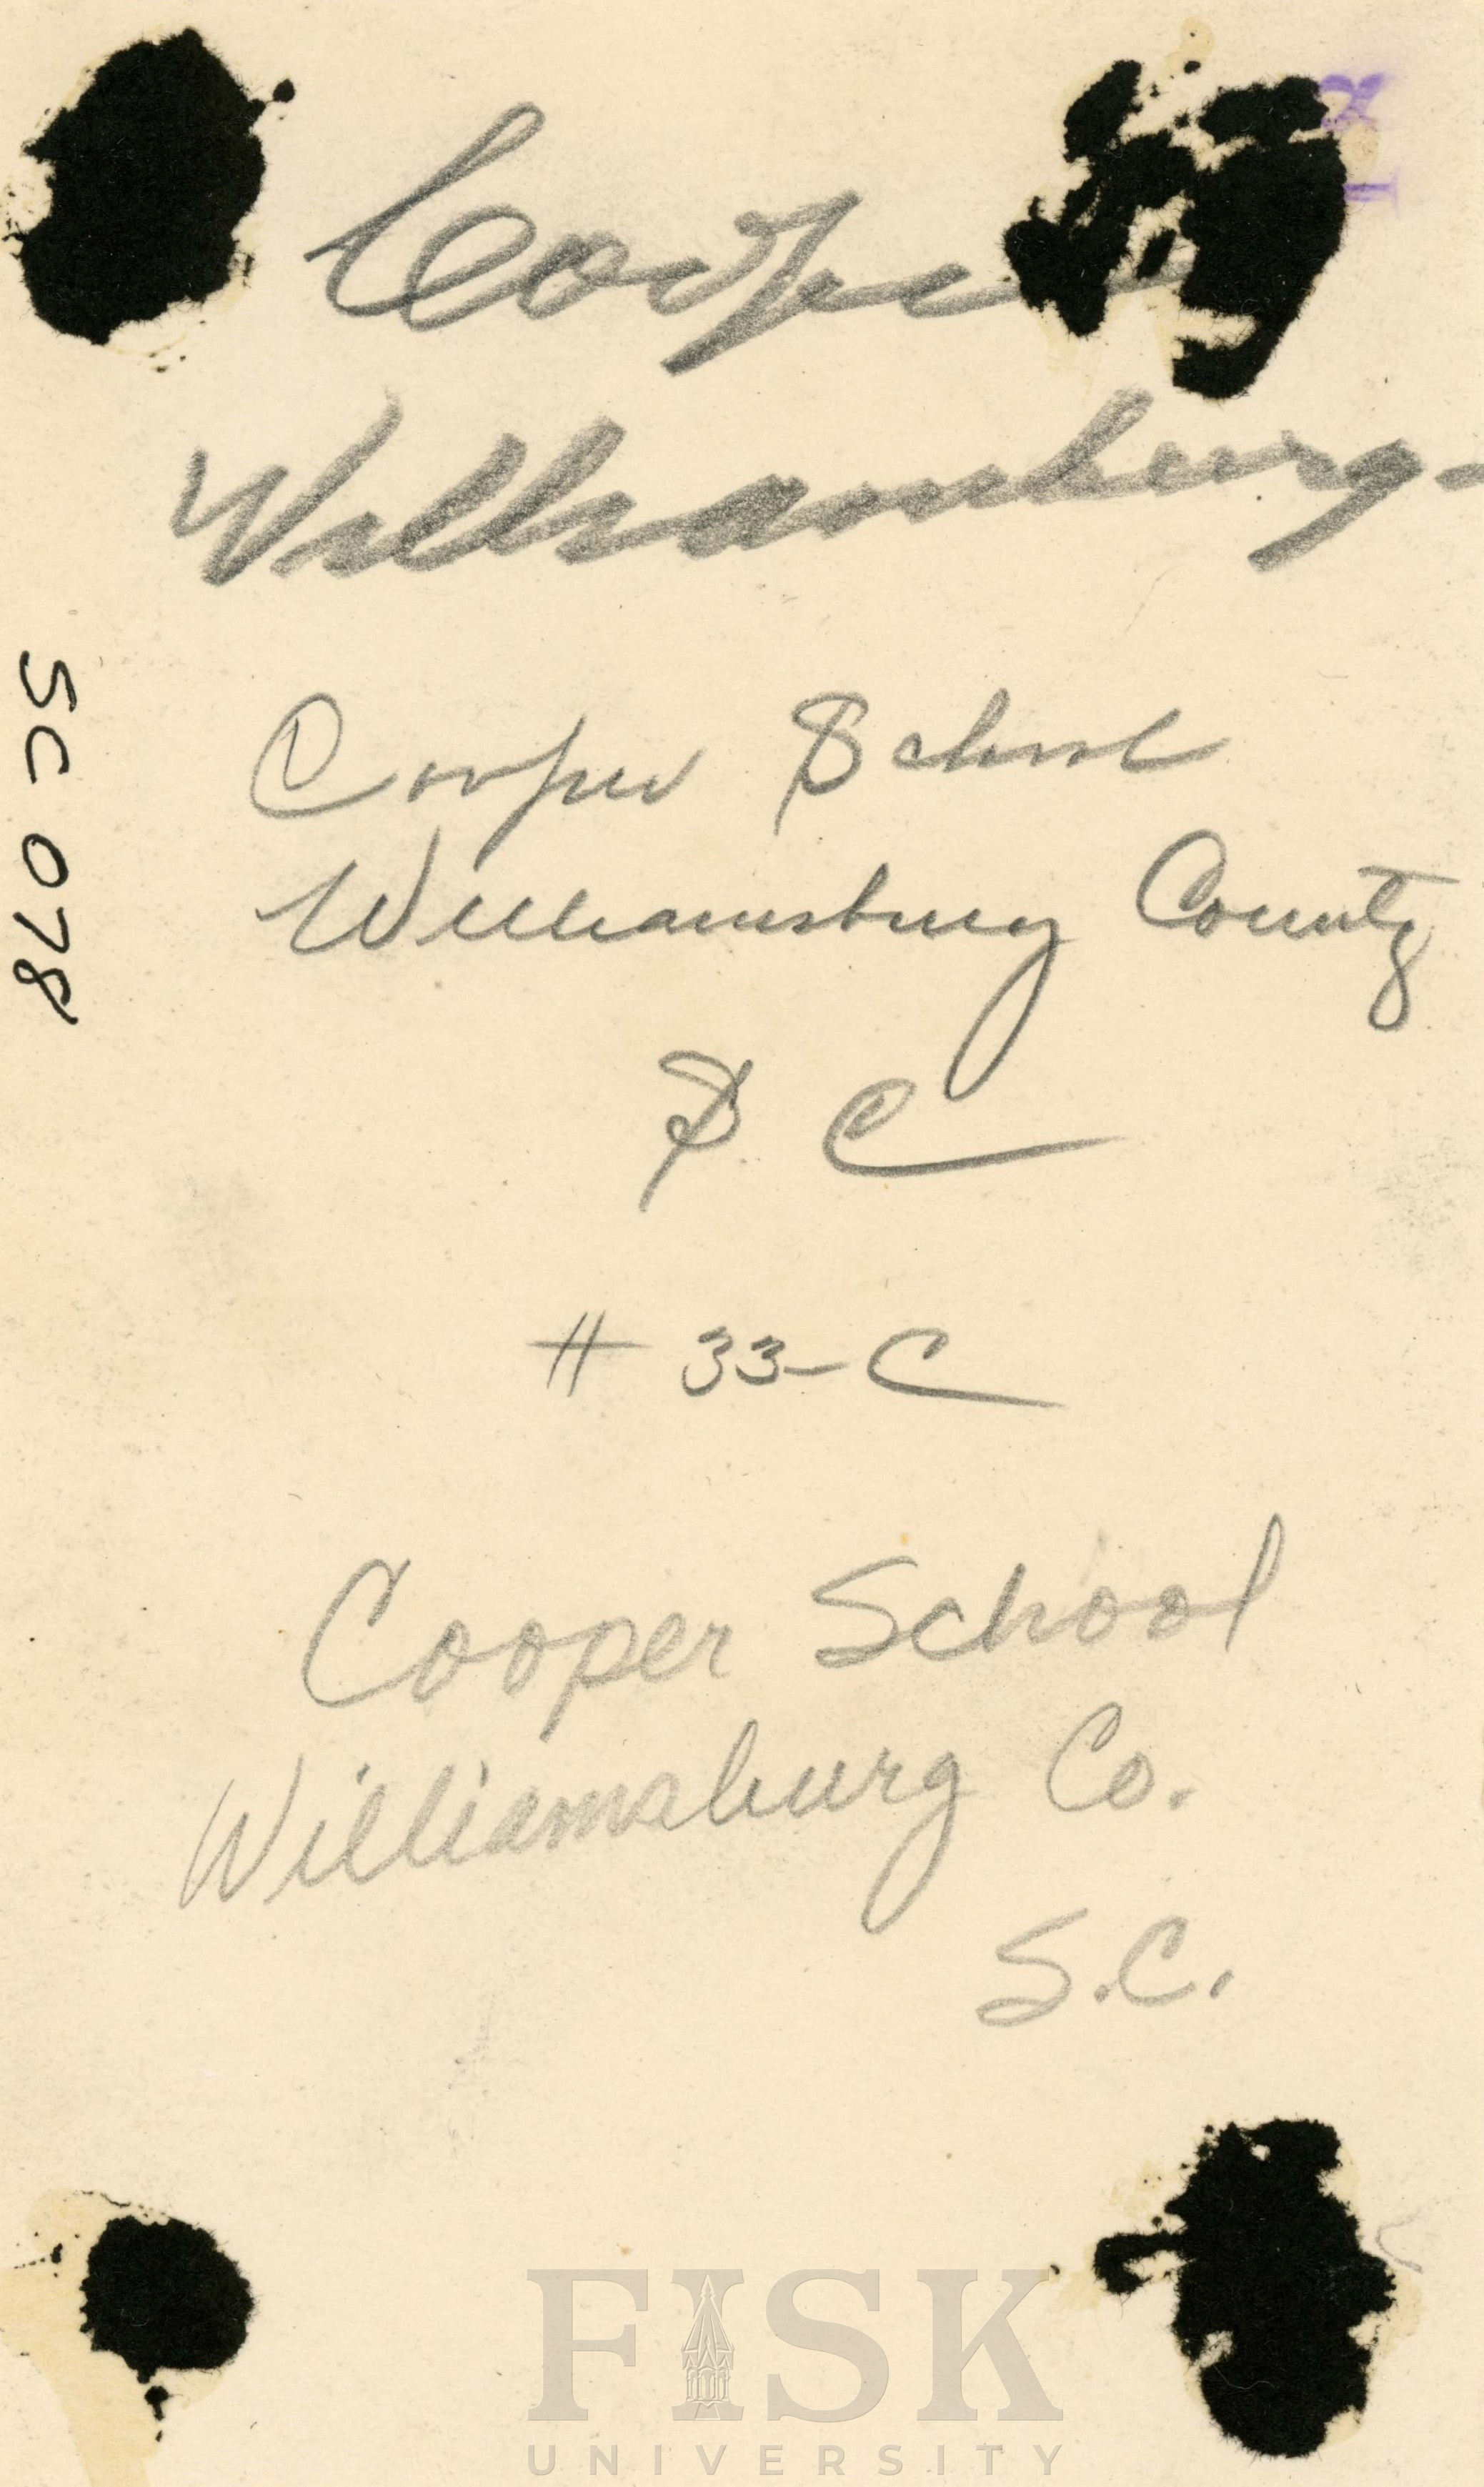 Cooper
Williamsburg-
SC 078
Cooper School
Williamsburg County
S C
# 33-C
Cooper School
Williamsburg Co.
S.C.
FISK
UNIVERSITY